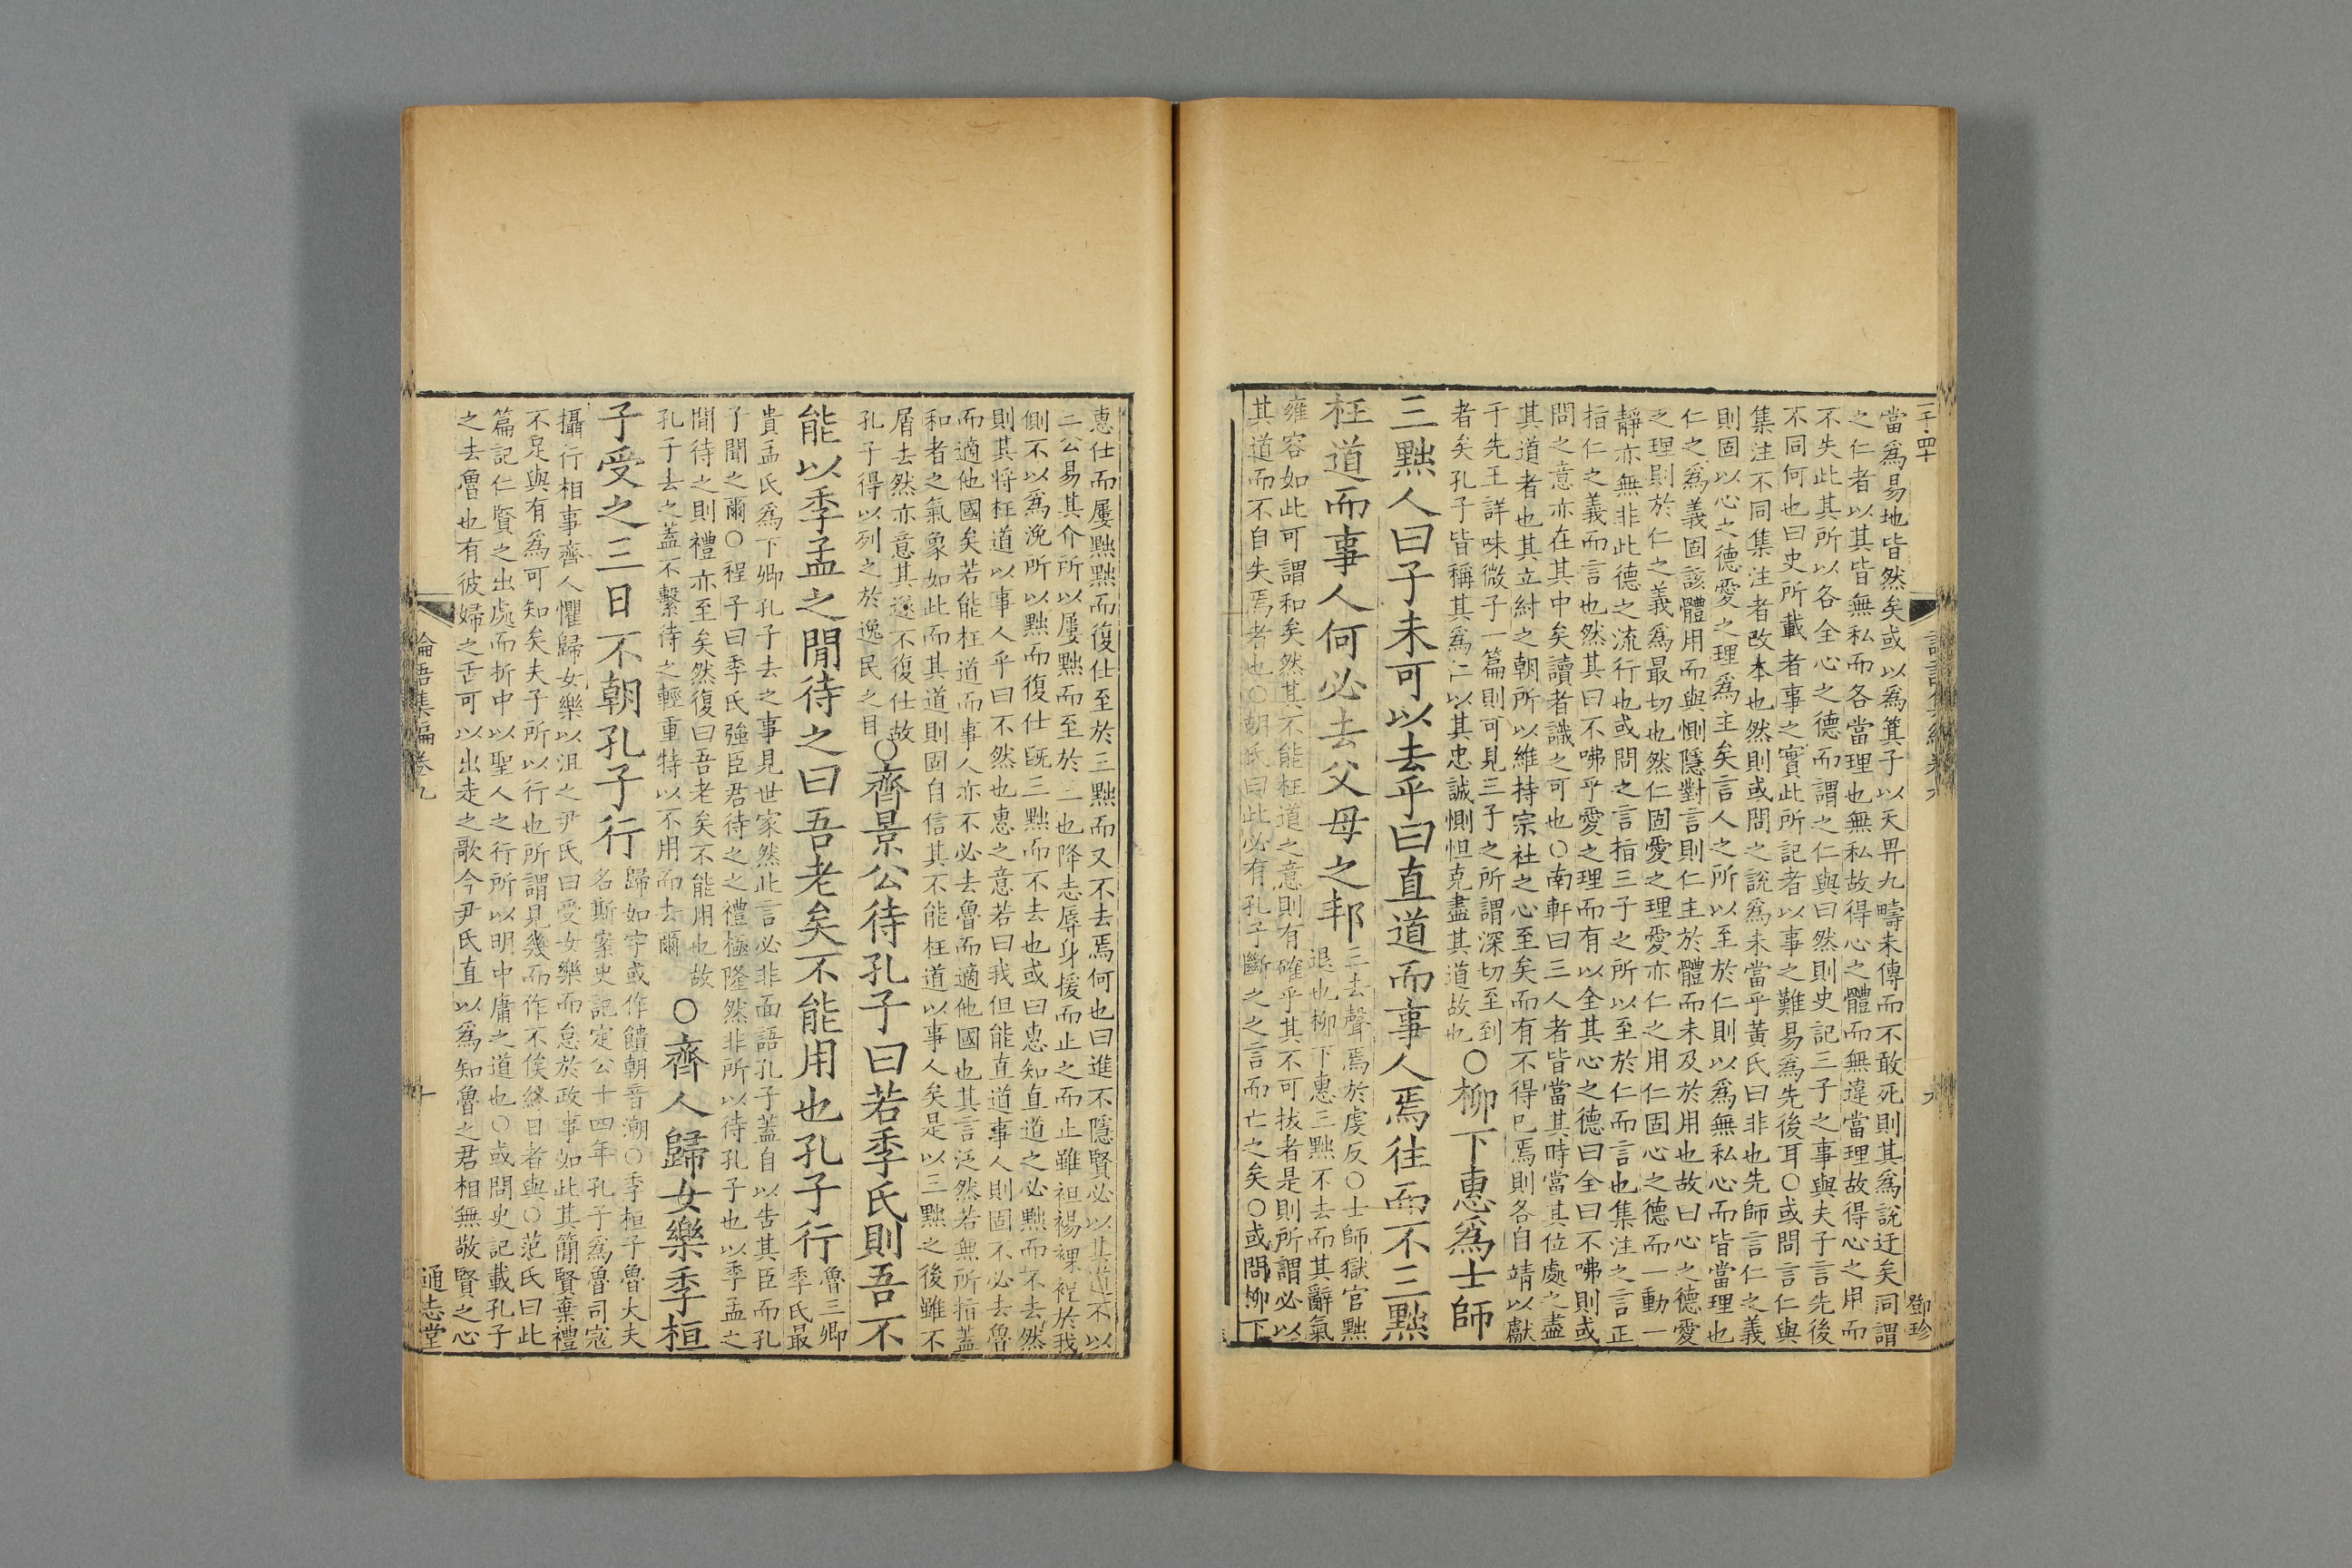 二千四十
鄧珍
當爲易地皆然矣或以爲箕子以天畀九疇未傳而不敢死則其爲說迂矣同謂
之仁者以其皆無私而各當理也無私故得心之體而無違當理故得心之用而
不失此其所以各全心之德而謂之仁與曰然則史記三子之事與夫子言先後
不同何也曰史所載者事之實此所記者以事之難易爲先後耳○或問言仁與
集注不同集注者改本也然則或問之說爲未當乎黃氏曰非也先師言仁之義
則固以心之德愛之理爲主矣言人之所以至於仁則以爲無私心而皆當理也
仁之爲義固該體用而與惻隱對言則仁主於體而未及於用也故曰心之德愛
之理則於仁之義爲最切也然仁固愛之理愛亦仁之用仁固心之德而一動一
靜亦無非此德之流行也或問之言指三子之所以至於仁而言也集注之言正
指仁之義而言也然其曰不咈乎愛之理而有以全其心之德曰全曰不咈則或
問之意亦在其中矣讀者識之可也○南軒曰三人者皆當其時當其位處之盡
其道者也其立紂之朝所以維持宗社之心至矣而有不得已焉則各自靖以獻
于先王詳味微子一篇則可見三子之所謂深切至到
者矣孔子皆稱其爲仁以其忠誠惻怛克盡其道故也
○柳下惠爲士師
三黜人曰子未可以去乎曰直道而事人焉往而不三黜
枉道而事人何必去父母之邦
三去聲焉於虔反○士師獄官黜
退也柳下惠三黜不去而其辭氣
雍容如此可謂和矣然其不能枉道之意則有確乎其不可拔者是則所謂必以
其道而不自失焉者也○胡氏曰此必有孔子斷之之言而亡之矣○或問柳下
惠仕而屢黜黜而復仕至於三黜而又不去焉何也曰進不隱賢必以其道不以
三公易其介所以屢黜而至於三也降志辱身援而止之而止雖袒裼裸裎於我
側不以爲浼所以黜而復仕旣三黜而不去也或曰惠知直道之必黜而不去然
則其將枉道以事人乎曰不然也惠之意若曰我但能直道事人則固不必去魯
而適他國矣若能枉道而事人亦不必去魯而適他國也其言泛然若無所指蓋
和者之氣象如此而其道則固自信其不能枉道以事人矣是以三黜之後雖不
屑去然亦意其遂不復仕故
孔子得以列之於逸民之目
○齊景公待孔子曰若季氏則吾不
能以季孟之閒待之曰吾老矣不能用也孔子行
魯三卿
季氏最
貴孟氏爲下卿孔子去之事見世家然此言必非面語孔子蓋自以告其臣而孔
子聞之爾○程子曰季氏強臣君待之之禮極隆然非所以待孔子也以季孟之
閒待之則禮亦至矣然復曰吾老矣不能用也故
孔子去之蓋不繫待之輕重特以不用而去爾
○齊人歸女樂季桓
子受之三日不朝孔子行
歸如字或作饋朝音潮○季桓子魯大夫
名斯案史記定公十四年孔子爲魯司寇
攝行相事齊人懼歸女樂以沮之尹氏曰受女樂而怠於政事如此其簡賢棄禮
不足與有爲可知矣夫子所以行也所謂見幾而作不俟終日者與○范氏曰此
篇記仁賢之出處而折中以聖人之行所以明中庸之道也○或問史記載孔子
之去魯也有彼婦之舌可以出走之歌今尹氏直以爲知魯之君相無敬賢之心
論語集編卷九
十
通志堂